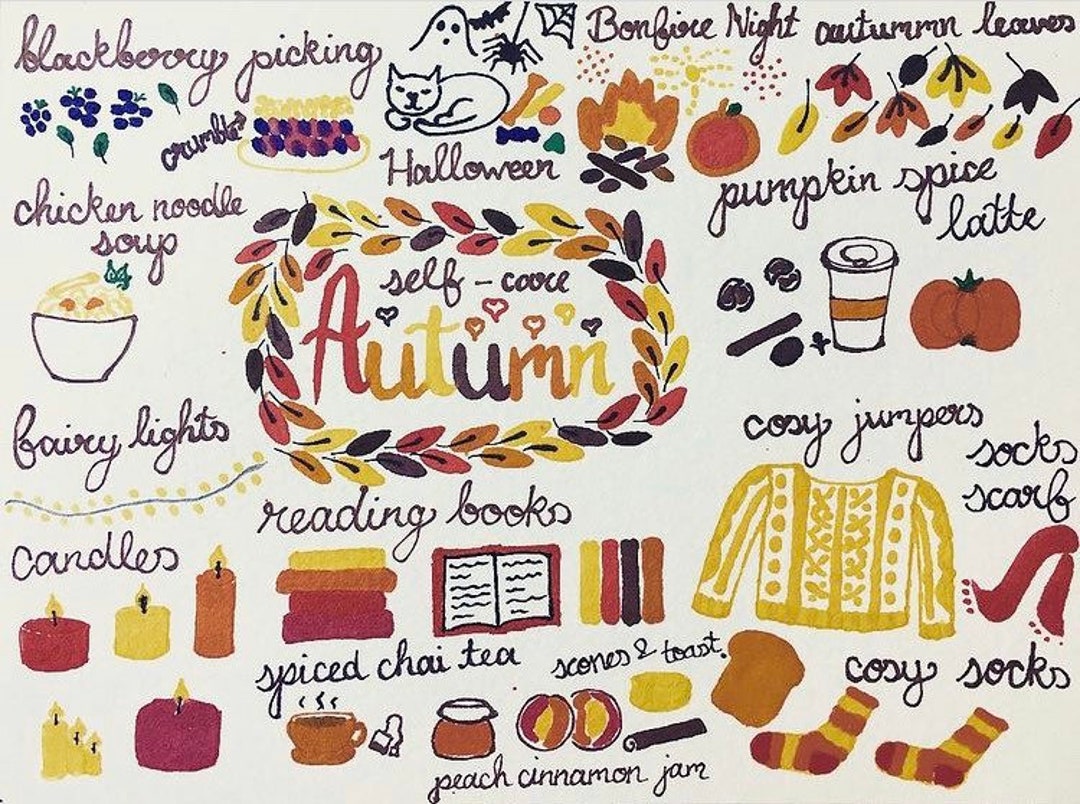 blackberry picking
crumble
Halloween
Bonfire Night
autummn leaves
chicken noodle
soup
pumpkin spice
latte
self-care
Autumn
fairy lights
cosy jumpers
socks
scarf
reading books
candles
spiced chai tea
scones & toast.
cosy socks
peach cinnamon jam